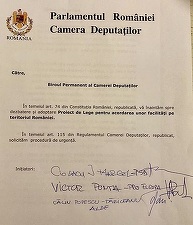 Parlamentul României
Camera Deputaților
ROMANIA
Către,
Biroul Permanent al Camerei Deputaților
În temeiul art. 74 din Constituția României, republicată, vă înaintăm spre
dezbatere și adoptare Proiect de Lege pentru acordarea unor facilități pe
teritoriul României.
În temeiul art. 115 din Regulamentul Camerei Deputaților, republicat,
solicităm procedura de urgență.
Inițiatori:
MARCEL
VICTOR PONTA - PRO ROMÂNIA
CĂLIN POPESCU-TĂRICEANU
ALDE